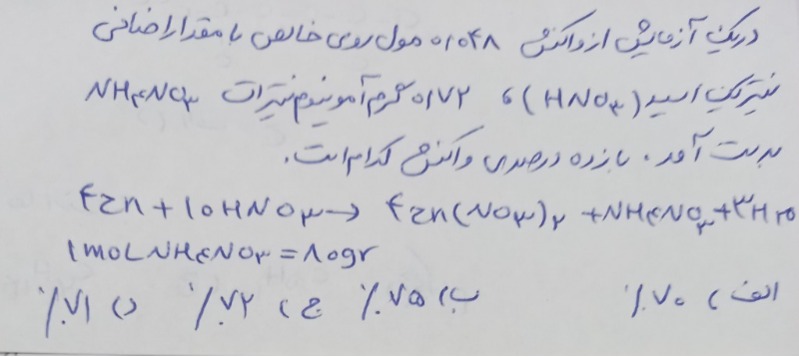 در یک آزمایش از واکنش ۰/۰۴۸ مول روی خالص با مقدار اضافی
نیتریک اسید (HNO۳) ، ۰/۷۲ گرم آمونیوم نیترات NH۴NO۳
بدست آمد. بازده درصدی واکنش کدام است.
۴zn + ۱۰HNO۳ → ۴zn(NO۳)۲ + NH۴NO۳ + ۳H۲O
۱moL NH۴NO۳ = ۸۰gr
الف) ۷۰٪ ب) ۷۵٪ ج) ۷۲٪ د) ۷۱٪